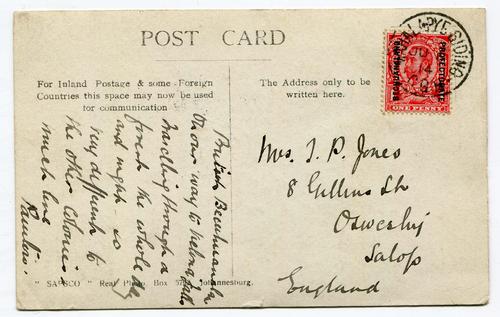 POST CARD
For Inland Postage & some Foreign
Countries this space may now be used
for communication
The Address only to be
written here.
BECHUANALAND
PROTECTORATE
ONE PENNY
PALAPYE SIDING
British Bechuanaland
On our way to Victoria Falls
travelling through a
forest the whole day
and night - so
very different to
the other colonies
much love
Mrs. J. P. Jones
8 Gittins St
Oswestry
Salop
England
" SAPSCO " Real Photo. Box 5792, Johannesburg.